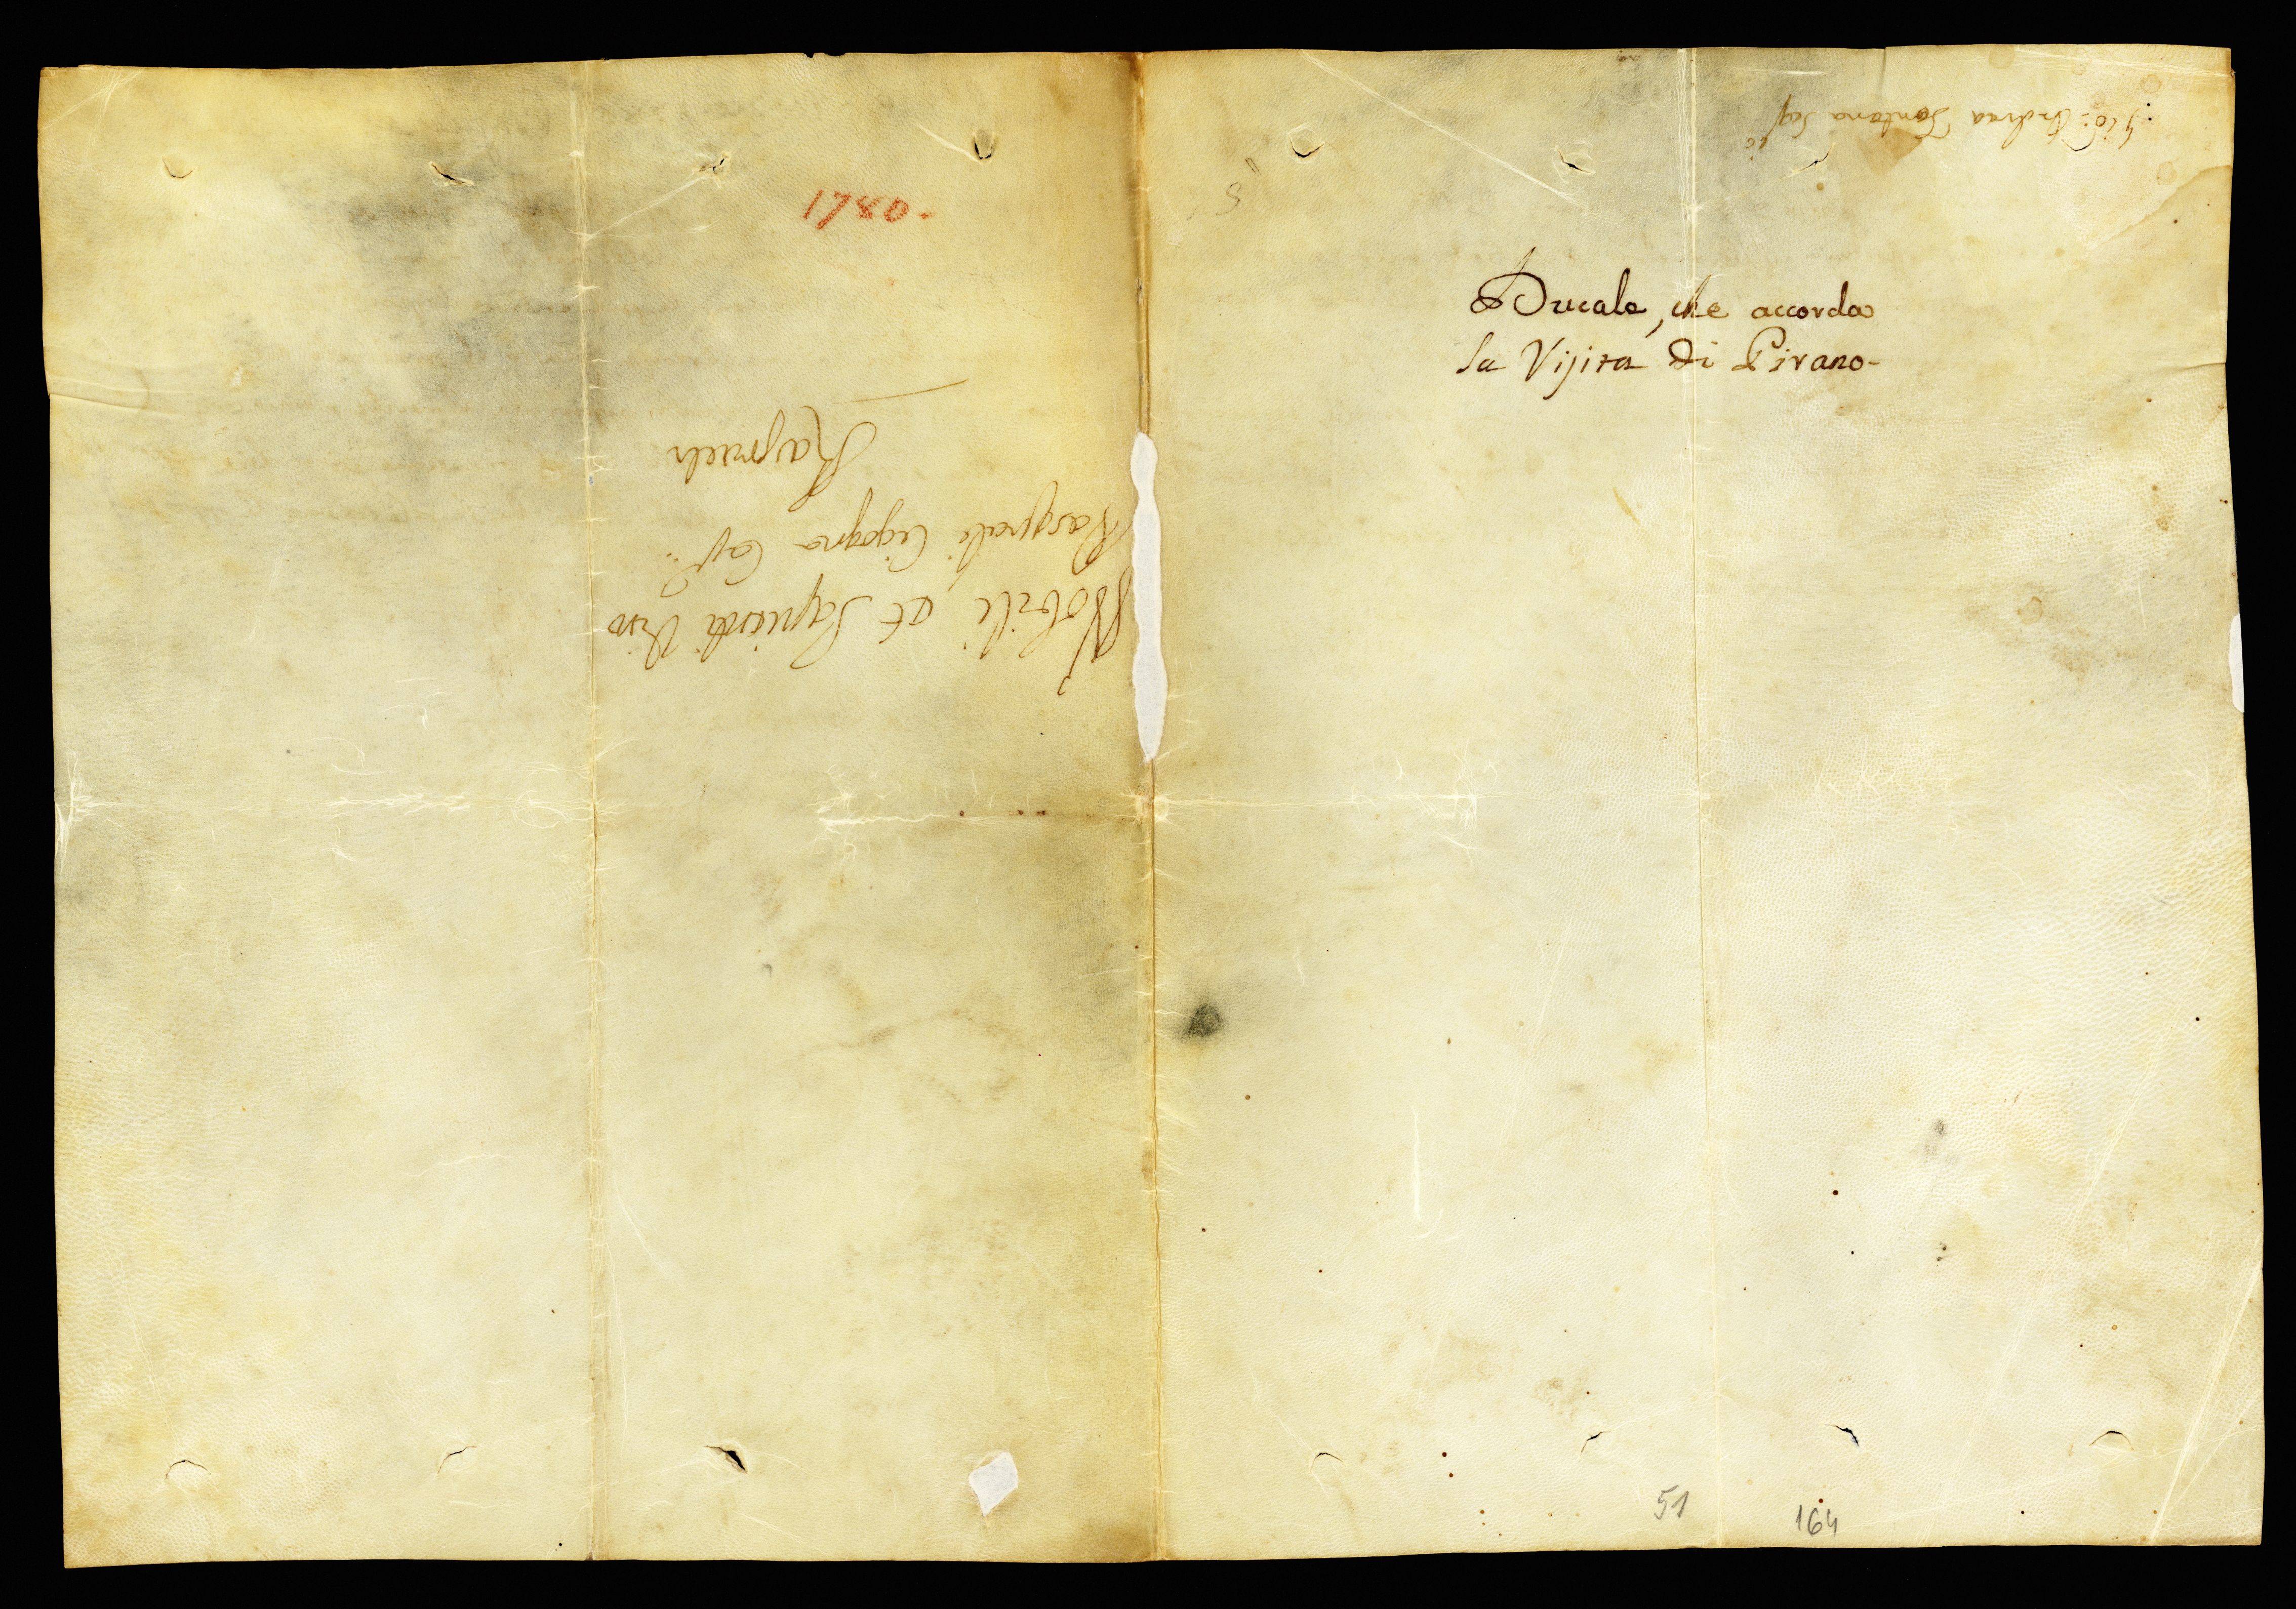 1780.
Nobili, et Sapienti Viro
Pasquali Cigogna Cap.º:
Raspurch
Ducale, che accorda
la Visita di Pirano-
Gio: Andrea Fontana Seg.rio
51
164